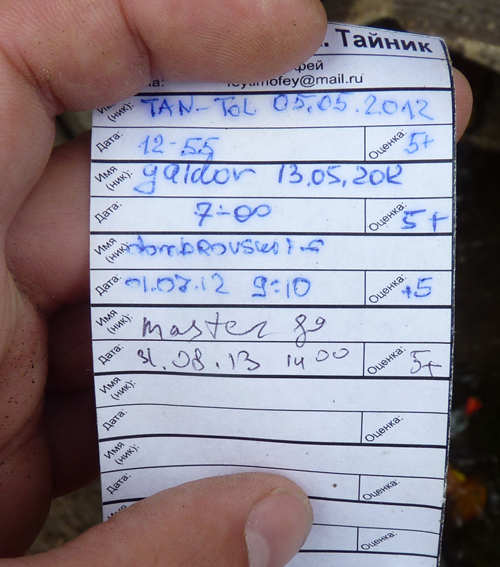 Тайник
фей
feytimofey@mail.ru
Имя (ник): TAN-ToL 05.05.2012
Дата: 12-55 Оценка: 5+
Имя (ник): galdor 13.05.2012
Дата: 7-00 Оценка: 5+
Имя (ник):
Дата: 01.07.12 9:10 Оценка: +5
Имя (ник): master
Дата: 31.08.13 14 00 Оценка: 5+
Имя (ник):
Дата: Оценка:
Имя (ник):
Дата: Оценка: